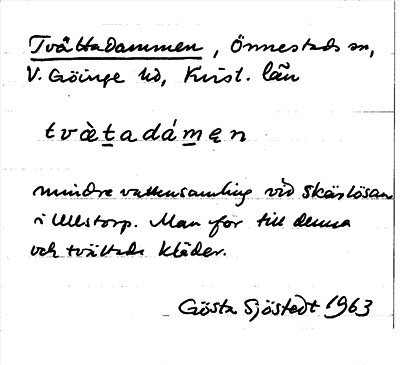 Tvättadammen, Önnestads sn,
V. Göinge hd, Krist. län
tvὰt̲adám̲en
mindre vattensamling vid Skärlösan
i Ullstorp. Man for till denna
och tvättade kläder.
Gösta Sjöstedt 1963